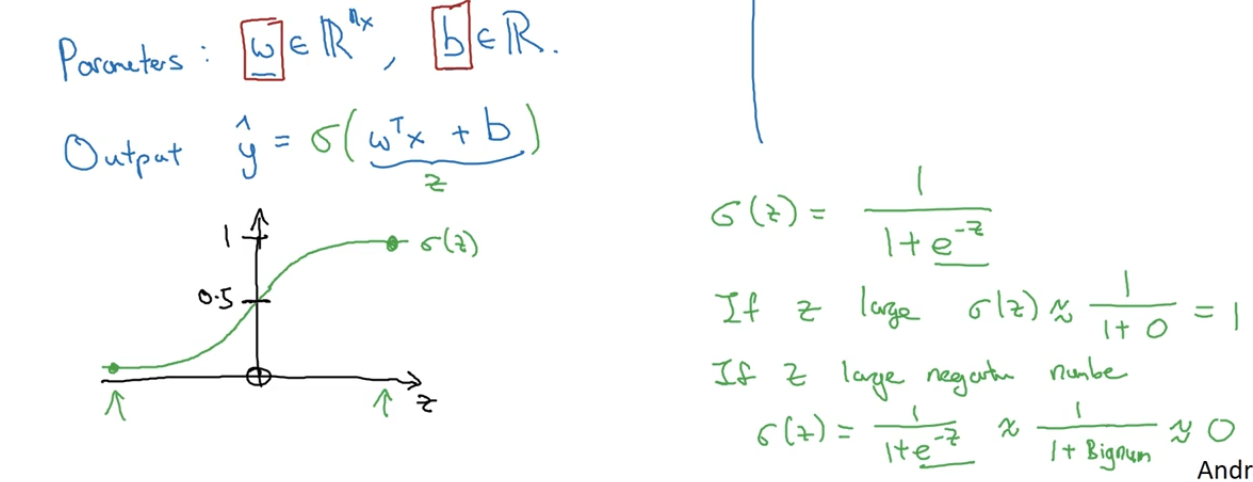 Parameters : w ∈ ℝⁿˣ , b ∈ ℝ.
Output ŷ = σ(wᵀx + b)
z
1
σ(z)
0.5
z
σ(z) = 1/(1+e^-z)
If z large σ(z) ≈ 1/(1+0) = 1
If z large negative numbe
σ(z) = 1/(1+e^-z) ≈ 1/(1+Bignum) ≈ 0
Andr